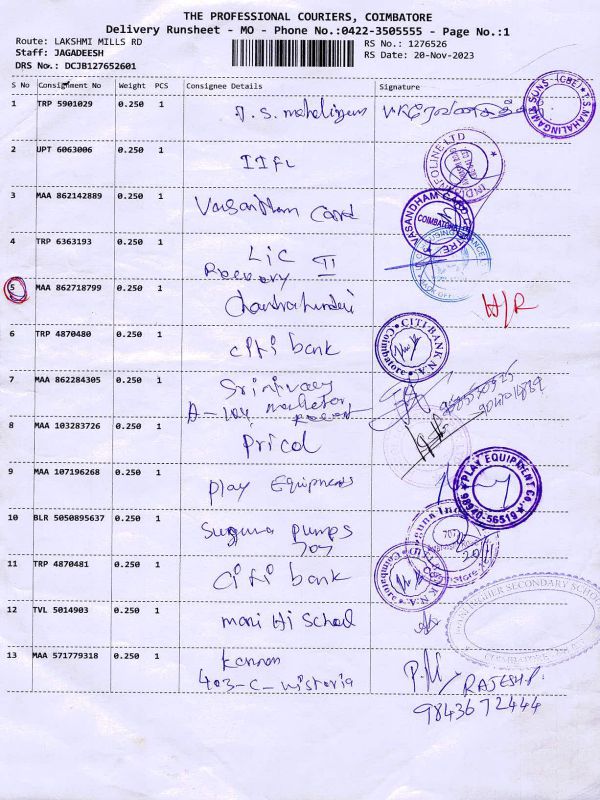 THE PROFESSIONAL COURIERS, COIMBATORE
Delivery Runsheet - MO - Phone No.:0422-3505555 - Page No.:1
Route: LAKSHMI MILLS RD
RS No.: 1276526
Staff: JAGADEESH
RS Date: 20-Nov-2023
DRS No.: DCJB127652601
S No Consignment No Weight PCS Consignee Details Signature
1 TRP 5901029 0.250 1
2 UPT 6063006 0.250 1 IIFL
3 MAA 862142889 0.250 1 Vasantham Card
VASANDHAM CARD CENTRE
COIMBATORE
4 TRP 6363193 0.250 1 LIC
Recovery II
5 MAA 862718799 0.250 1 H/R
6 TRP 4870480 0.250 1 citi bank
CITI BANK N.A. Coimbatore
7 MAA 862284305 0.250 1
8 MAA 103283726 0.250 1 Pricol
9 MAA 107196268 0.250 1 Play Equipments
PLAY EQUIPMENT CO.,
98940-56519
10 BLR 5050895637 0.250 1 Suguna Pumps
707
11 TRP 4870481 0.250 1 Citi bank
12 TVL 5014903 0.250 1 mani Hi School
13 MAA 571779318 0.250 1 Kannan
403-C-wistoria
RAJESH.P.
9843672444